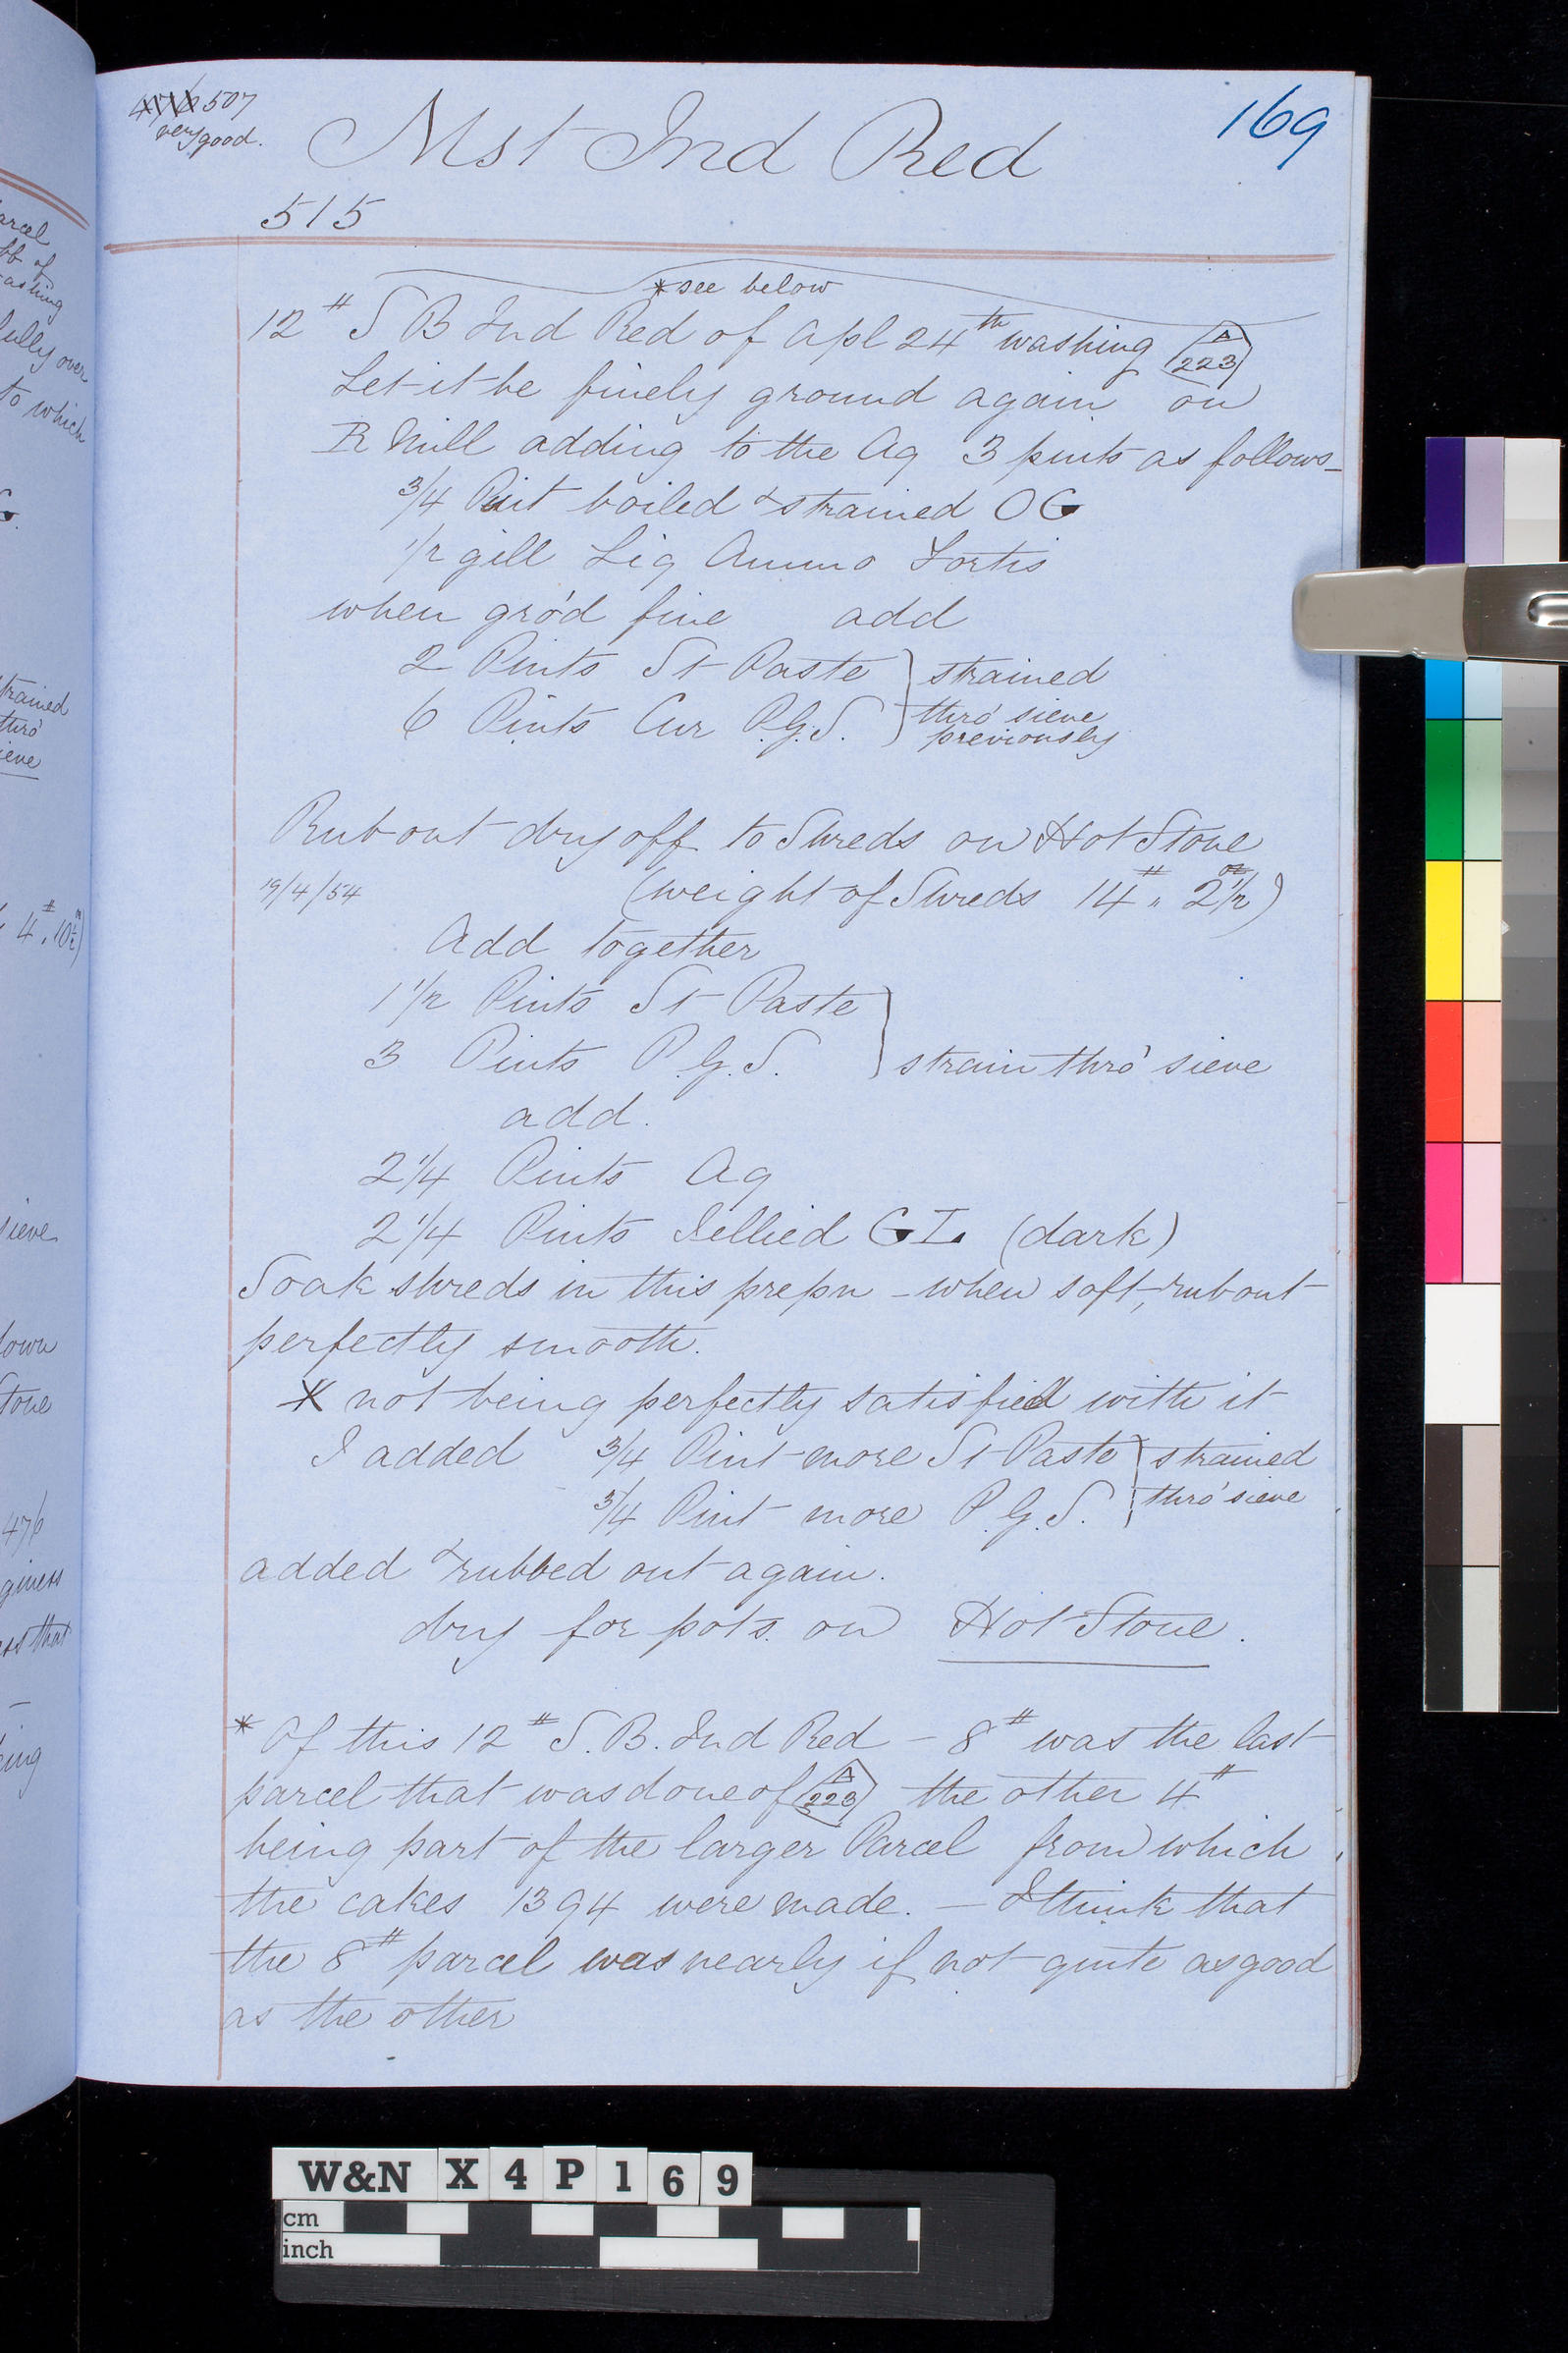 507
very good.
169
Mst Ind Red
515
*see below
12# S B Ind Red of Apl 24th washing A 223
Let it be finely ground again on
R Mill adding to the Aq 3 pints as follows_
3/4 Pint boiled & strained OG
1/2 gill Liq Ammo Fortis
when gro'd fine add
2 Pints St Paste } strained
6 Pints Cur P.G.S. } thro' sieve
previously
Rub out dry off to Shreds on Hot Stone
19/4/54 (weight of Shreds 14# " 2 1/2 oz)
Add together
1 1/2 Pints St Paste }
3 Pints P.G.S. } strain thro' sieve
add.
2 1/4 Pints Aq
2 1/4 Pints Jellied GL (dark)
Soak shreds in this prepn - when soft, rub out
perfectly smooth.
X not being perfectly satisfied with it
I added 3/4 Pint more St Paste } strained
3/4 Pint more P.G.S. } thro' sieve
added & rubbed out again.
dry for pots. on Hot Stone.
* Of this 12# S.B. Ind Red - 8# was the last
parcel that was done of A 223 the other 4#
being part of the larger Parcel from which
the cakes 1394 were made. — I think that
the 8# parcel was nearly if not quite as good
as the other
arcel
of
lully over
to which
trained
thro'
ieve
4# " 10 1/2
sieve
down
Stone
476
giness
that
W&N X4P169
cm
inch